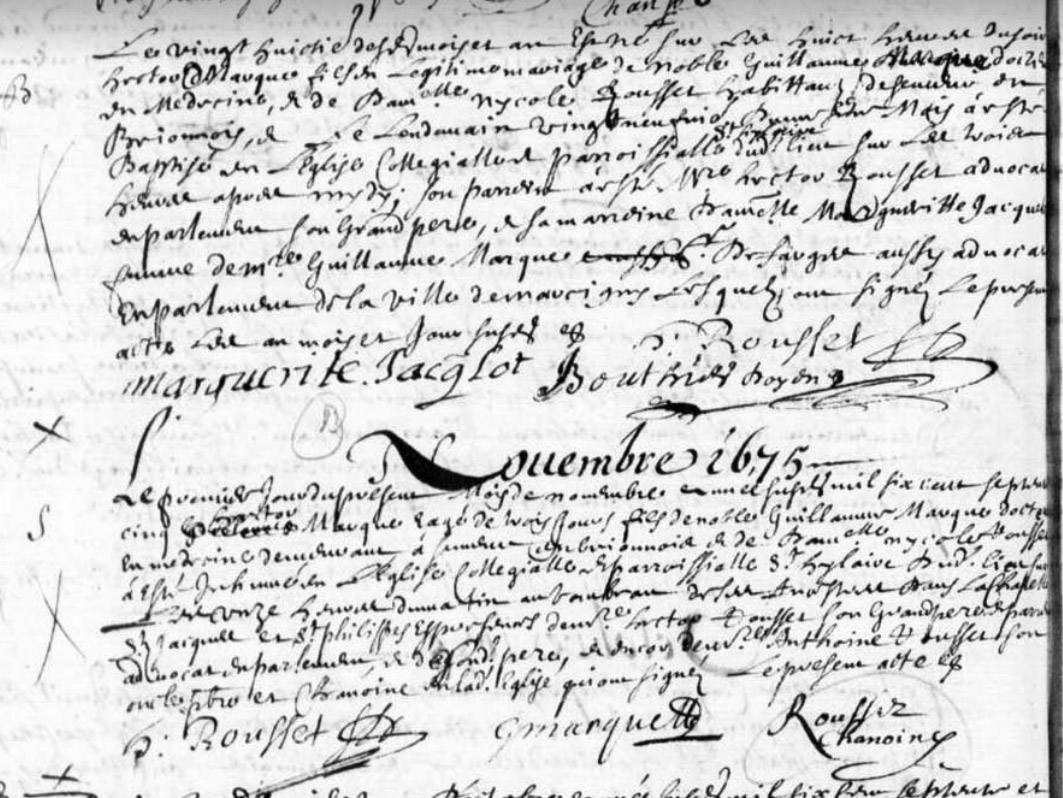 Le vingt huictie desd moiset an Est né sur les huict heures du soir
hector Marque fils en Legitime mariage de noble Guillaume Marque docteur
en Medecine, & de Damelle nycole Rousset habittans de Semur en
Brionnois, & Le Lendemain vingt neufvie dud Mois a esté
Baptisé en L'Eglise Collegialle & parroissialle St hylaire dud. lieu sur Les trois
heures apres midy; son parrein a esté Mre hector Rousset advocat
en parlement son Grand pere, & sa mareine Damelle Margueritte Jacquelot
femme de Mre Guillaume Marque Sr. De aussy advocat
En parlement de la ville de marcigny Lesquelz ont signés Le present
acte Les an moiset Jour susd
marguerite Jacqlot Bouthier doyen Rousset
Nouembre 1675
Le premier Jour du present Mois de novembre mil six cent septante
cinq hector Marque Eagé de trois Jours fils de noble Guillaume Marque docteur
En medecine demeurant a Semur en brionnois & de Damelle nycole Rousset
a Esté Inhumé en L'Eglise Collegialle & parroissialle St hylaire dud. lieu sur
Les onze heures du matin au tombeau de ses Ancestre dans La Chapelle
St Jacques et St philippes En presences de mre hector Rousset son Grand pere & parrein
advocat en parlement, & de sond. pere, & encor de mre Anthoine Rousset son
oncle pbre et Chanoine en lad. Eglise qui ont signez Le present acte
Rousset Gmarque Rousset
Chanoine